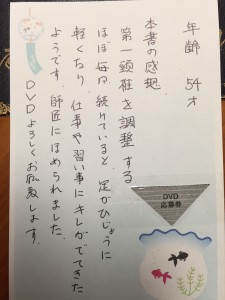 年齢　54才
本書の感想
第一頸椎を調整する
ほぼ毎日続けていると足がひじょうに
軽くなり仕事や習い事にキレがでてきた
ようです。師匠にほめられました。
DVDよろしくお願い致します。
DVD
応募券